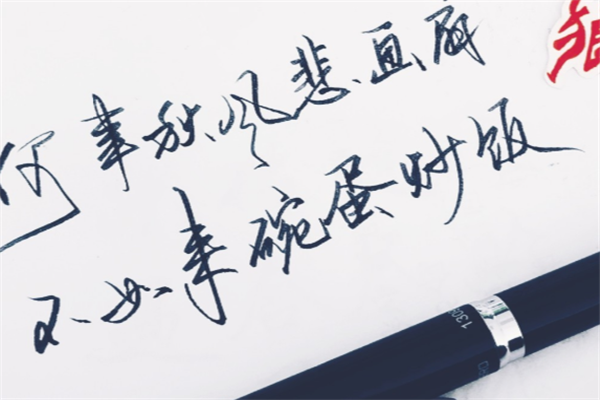 何事秋风悲画扇
不如来碗蛋炒饭